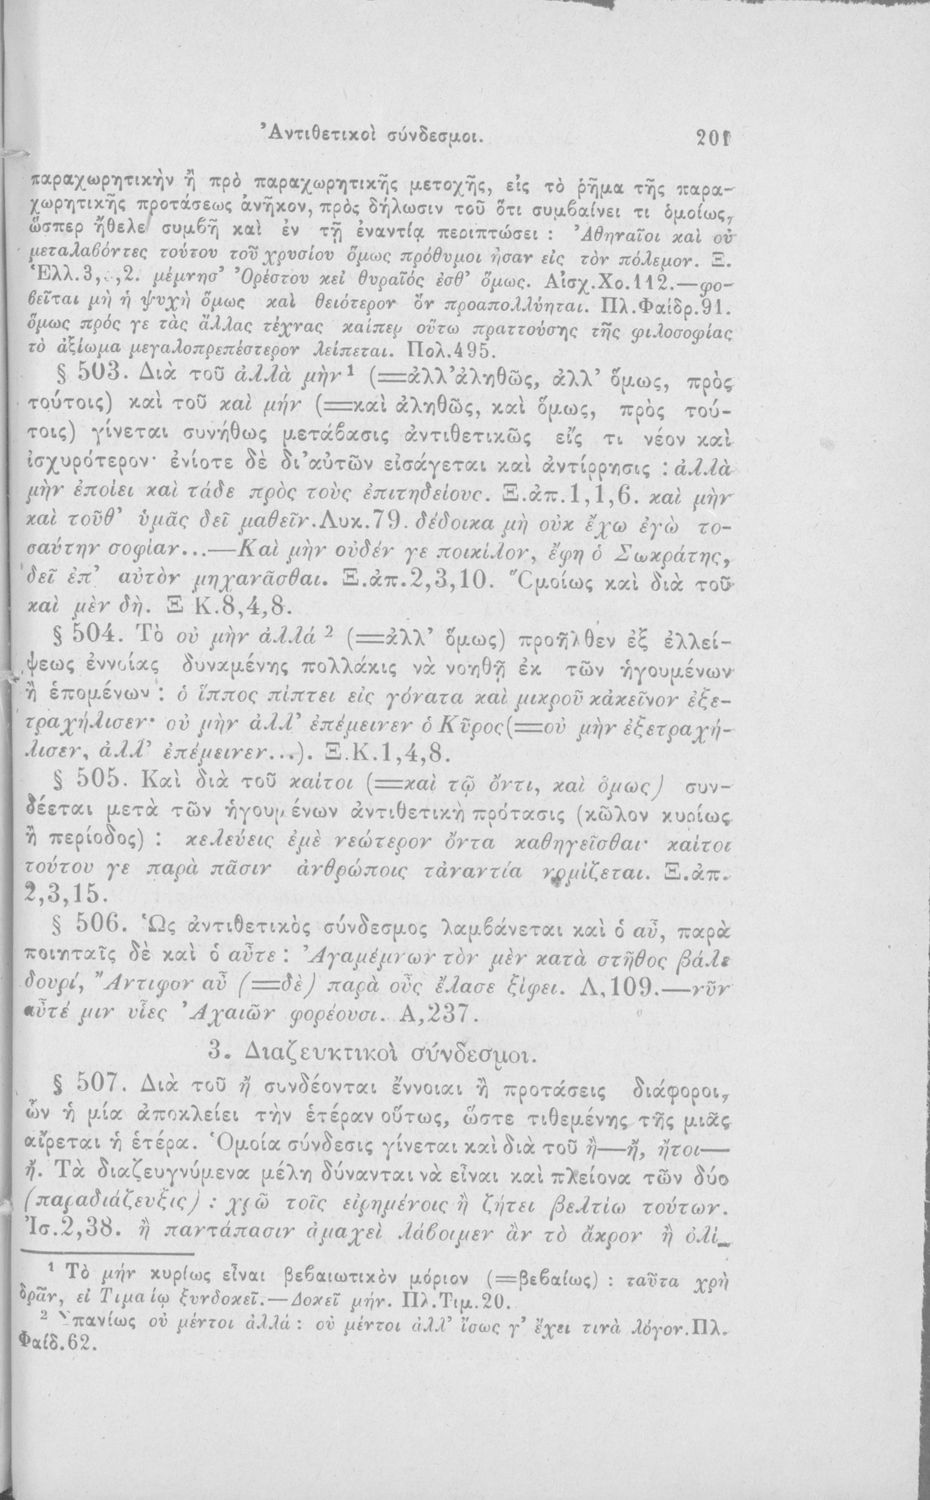 Ἀντιθετικοὶ σύνδεσμοι. 201
παραχωρητικὴν ἢ πρὸ παραχωρητικῆς μετοχῆς, εἰς τὸ ῥῆμα τῆς παρα-
χωρητικῆς προτάσεως ἀνῆκον, πρὸς δήλωσιν τοῦ ὅτι συμβαίνει τι ὁμοίως,
ὥσπερ ἤθελε συμβῆ καὶ ἐν τῇ ἐναντίᾳ περιπτώσει : Ἀθηναῖοι καὶ οὐ
μεταλαβόντες τούτου τοῦ χρυσίου ὅμως πρόθυμοι ἦσαν εἰς τὸν πόλεμον. Ξ.
Ἑλλ.3, ,2. μέμνησ’ Ὀρέστου κεἰ θυραῖός ἐσθ’ ὅμως. Αἰσχ.Χο.112.—φο-
βεῖται μὴ ἡ ψυχὴ ὅμως καὶ θειότερον ὂν προαπολλύηται. Πλ.Φαίδρ.91.
ὅμως πρός γε τὰς ἄλλας τέχνας καίπερ οὕτω πραττούσης τῆς φιλοσοφίας
τὸ ἀξίωμα μεγαλοπρεπέστερον λείπεται. Πολ.495.
§ 503. Διὰ τοῦ ἀλλὰ μὴν ¹ (=ἀλλ’ἀληθῶς, ἀλλ’ ὅμως, πρὸς
τούτοις) καὶ τοῦ καὶ μήν (=καὶ ἀληθῶς, καὶ ὅμως, πρὸς τού-
τοις) γίνεται συνήθως μετάβασις ἀντιθετικῶς εἴς τι νέον καὶ
ἰσχυρότερον· ἐνίοτε δὲ δι’αὐτῶν εἰσάγεται καὶ ἀντίρρησις : ἀλλὰ
μὴν ἐποίει καὶ τάδε πρὸς τοὺς ἐπιτηδείους. Ξ.ἀπ.1,1,6. καὶ μὴν
καὶ τοῦθ’ ὑμᾶς δεῖ μαθεῖν.Λυκ.79. δέδοικα μὴ οὐκ ἔχω ἐγὼ το-
σαύτην σοφίαν...—Καὶ μὴν οὐδέν γε ποικίλον, ἔφη ὁ Σωκράτης,
δεῖ ἐπ’ αὐτὸν μηχανᾶσθαι. Ξ.ἀπ.2,3,10. Ὁμοίως καὶ διὰ τοῦ
καὶ μὲν δὴ. Ξ Κ.8,4,8.
§ 504. Τὸ οὐ μὴν ἀλλά ² (=ἀλλ’ ὅμως) προῆλθεν ἐξ ἐλλεί-
ψεως ἐννοίας δυναμένης πολλάκις νὰ νοηθῇ ἐκ τῶν ἡγουμένων
ἢ ἑπομένων : ὁ ἵππος πίπτει εἰς γόνατα καὶ μικροῦ κἀκεῖνον ἐξε-
τραχήλισεν· οὐ μὴν ἀλλ’ ἐπέμεινεν ὁ Κῦρος(=οὐ μὴν ἐξετραχή-
λισεν, ἀλλ’ ἐπέμεινεν...). Ξ.Κ.1,4,8.
§ 505. Καὶ διὰ τοῦ καίτοι (=καὶ τῷ ὄντι, καὶ ὅμως) συν-
δέεται μετὰ τῶν ἡγουμένων ἀντιθετικὴ πρότασις (κῶλον κυρίως
ἢ περίοδος) : κελεύεις ἐμὲ νεώτερον ὄντα καθηγεῖσθαι· καίτοι
τούτου γε παρὰ πᾶσιν ἀνθρώποις τἀναντία νομίζεται. Ξ.ἀπ.
2,3,15.
§ 506. Ὡς ἀντιθετικὸς σύνδεσμος λαμβάνεται καὶ ὁ αὖ, παρὰ
ποιηταῖς δὲ καὶ ὁ αὖτε : Ἀγαμέμνων τὸν μὲν κατὰ στῆθος βάλε
δουρί, Ἄντιφον αὖ (=δὲ) παρὰ οὖς ἔλασε ξίφει. Λ,109.—νῦν
αὖτέ μιν υἷες Ἀχαιῶν φορέουσι. Α,237.
3. Διαζευκτικοὶ σύνδεσμοι.
§ 507. Διὰ τοῦ ἤ συνδέονται ἔννοιαι ἢ προτάσεις διάφοροι,
ὧν ἡ μία ἀποκλείει τὴν ἑτέραν οὕτως, ὥστε τιθεμένης τῆς μιᾶς
αἴρεται ἡ ἑτέρα. Ὁμοία σύνδεσις γίνεται καὶ διὰ τοῦ ἢ—ἤ, ἤτοι—
ἤ. Τὰ διαζευγνύμενα μέλη δύνανται νὰ εἶναι καὶ πλείονα τῶν δύο
(παραδιάζευξις) : χρῶ τοῖς εἰρημένοις ἢ ζήτει βελτίω τούτων.
Ἰσ.2,38. ἢ παντάπασιν ἀμαχεὶ λάβοιμεν ἂν τὸ ἄκρον ἢ ὀλί-
¹ Τὸ μήν κυρίως εἶναι βεβαιωτικὸν μόριον (=βεβαίως) : ταῦτα χρὴ
δρᾶν, εἰ Τιμαίῳ ξυνδοκεῖ.—Δοκεῖ μήν. Πλ.Τιμ.20.
² Σπανίως οὐ μέντοι ἀλλά : οὐ μέντοι ἀλλ’ ἴσως γ’ ἔχει τινὰ λόγον.Πλ.
Φαίδ.62.